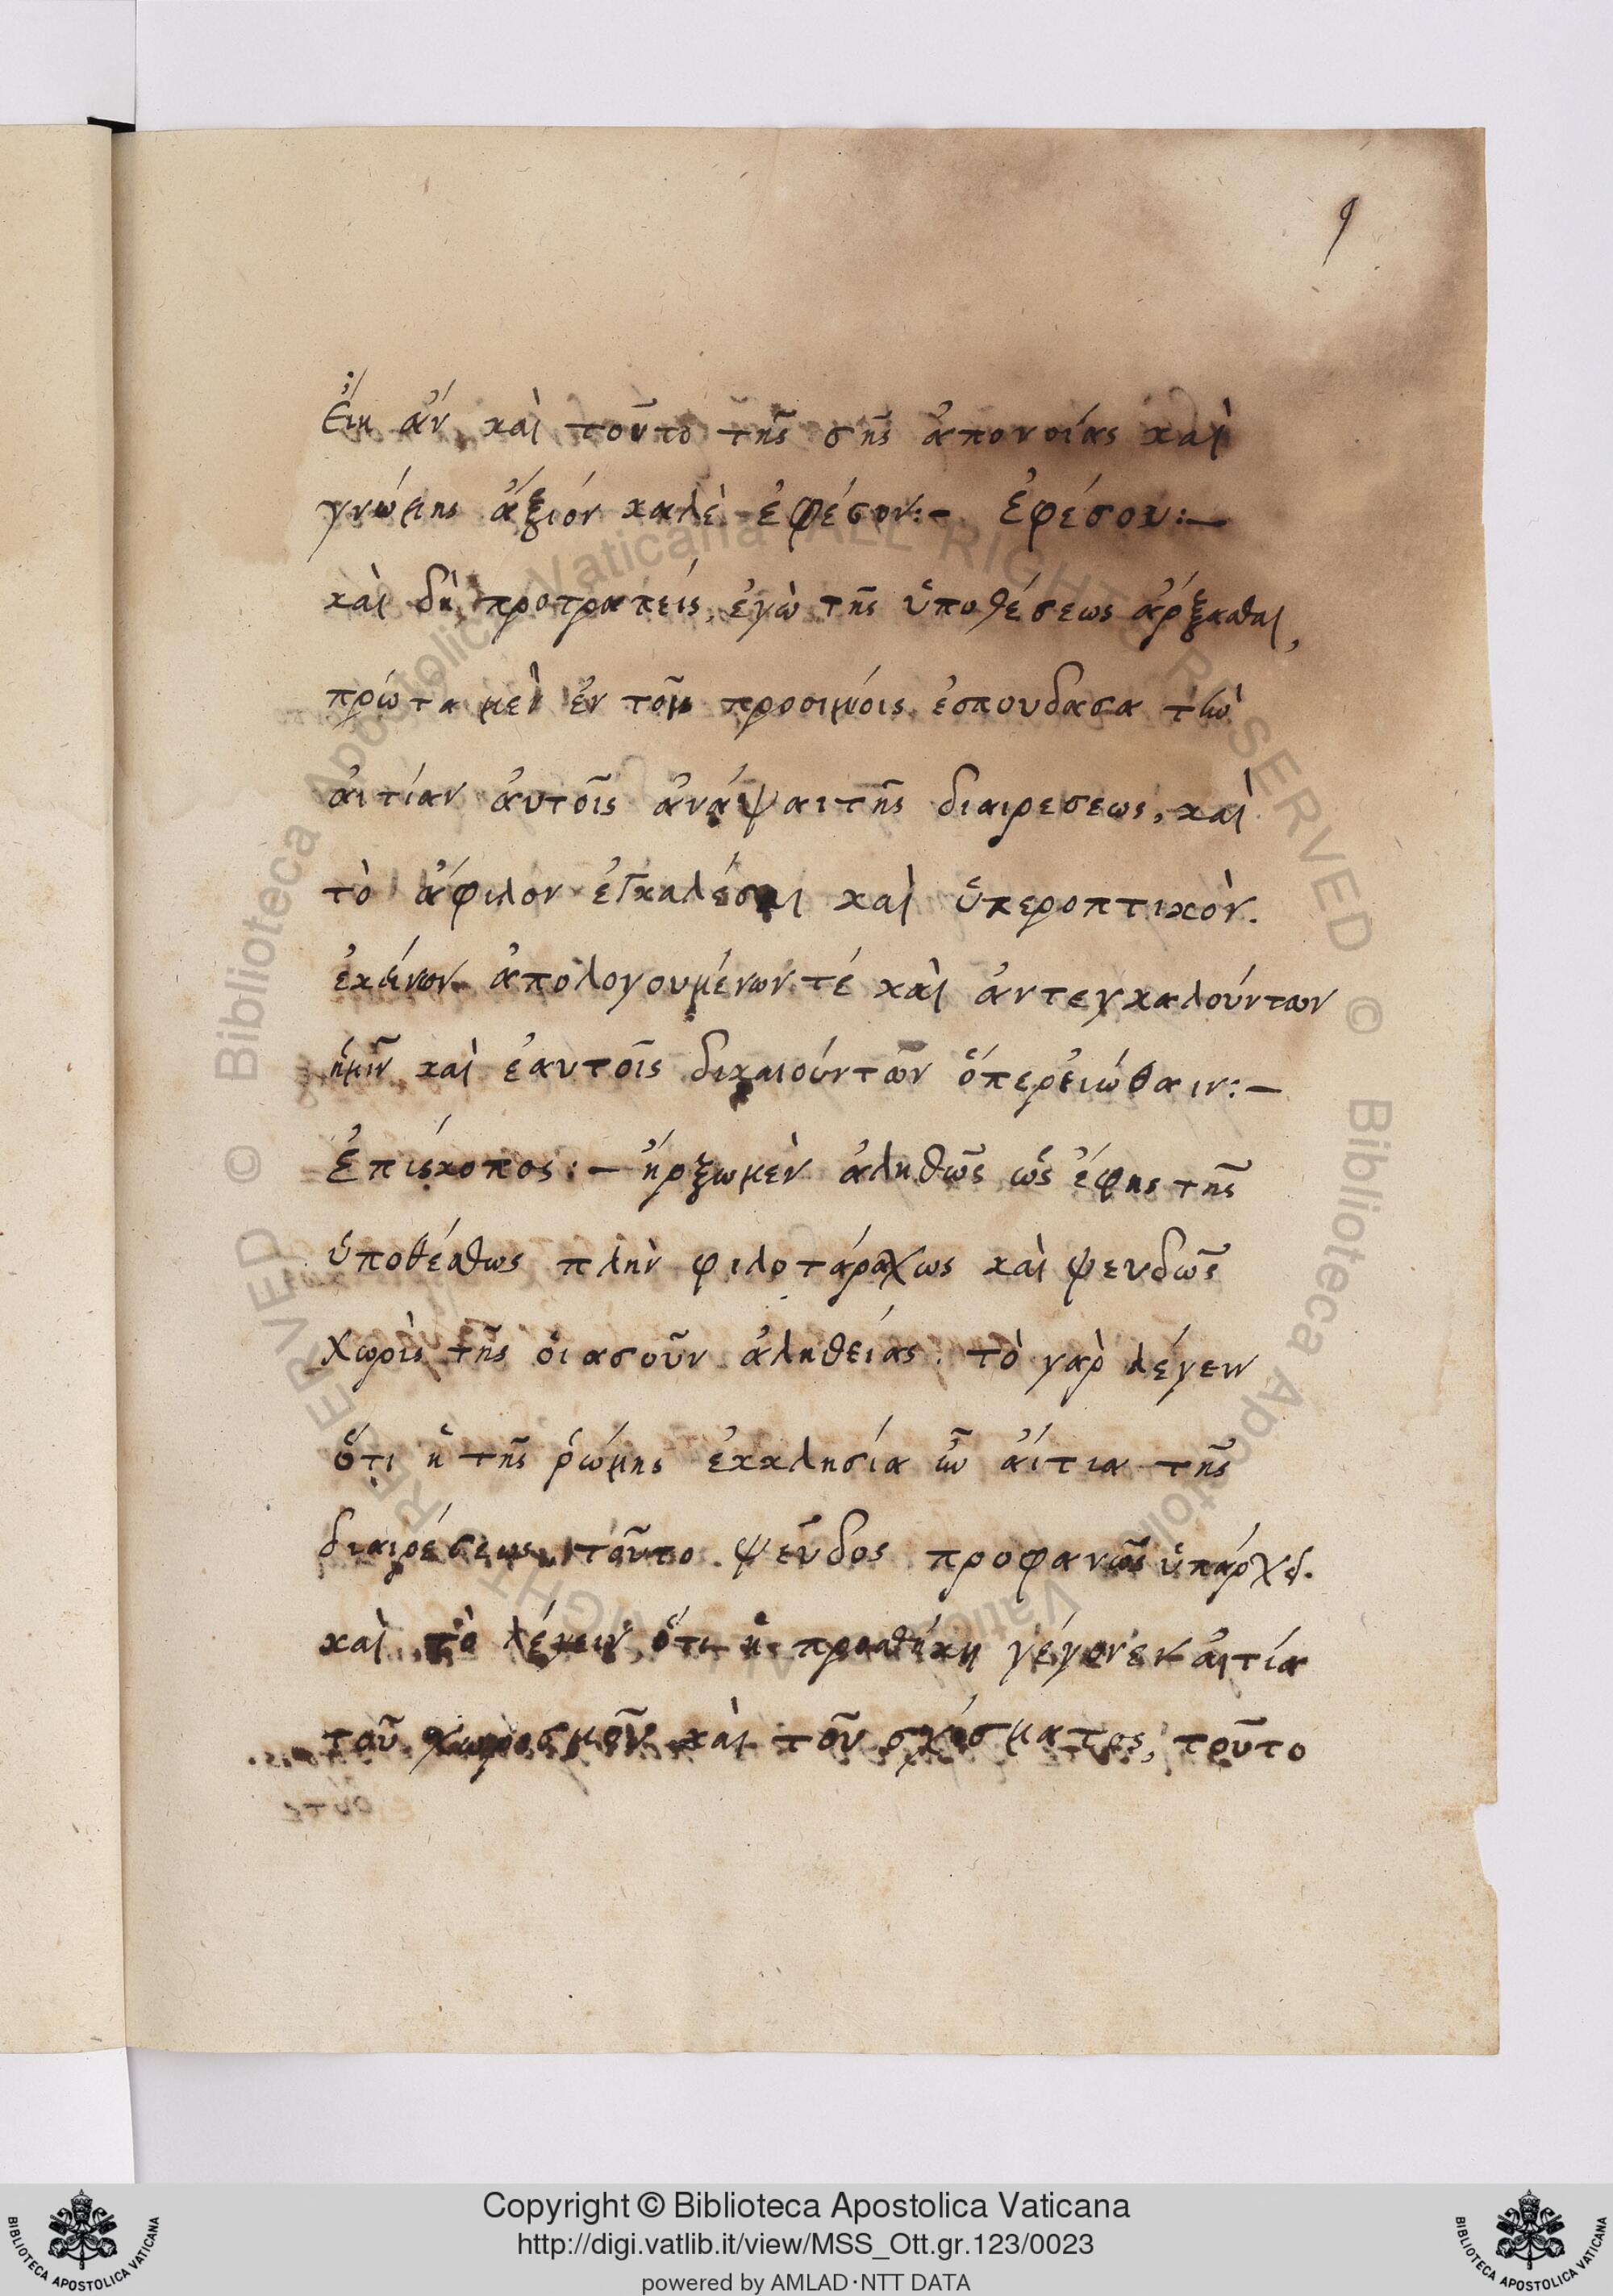 9
Εἴη ἂν καὶ τοῦτο τῆς σῆς ἀπονοίας καὶ
γνώμης ἄξιόν καλὲ ἐφέσου:— Ἐφέσου:—
καὶ δὴ προτραπεὶς ἐγὼ τῆς ὑποθέσεως ἄρξασθαι,
πρῶτα μὲν ἐν τοῖς προοιμίοις ἐσπουδασα τὴν
ἀιτίαν ἀυτοῖς ἀνάψαι τῆς διαιρεσεως, καὶ
τὸ ἄφιλον ἐγκαλέσαι καὶ ὑπεροπτικὸν.
ἐκείνων ἀπολογουμένων τέ καὶ ἀντεγκαλούντων
ἡμῖν καὶ ἑαυτοῖς δικαιούντων ὅπερ ἐιώθασιν:—
Ἐπίσκοπος:— ἤρξω μὲν ἀληθῶς ὡς ἔφης τῆς
ὑποθέσεως πλὴν φιλοτάραχως καὶ ψευδῶς
χωρὶς τῆς οἱασοῦν ἀληθείας. τὸ γαρ λέγειν
ὅτι ἡ τῆς ῥώμης ἐκκλησία ἦν ἀίτια τῆς
διαιρέσεως τοῦτο ψεῦδος προφανῶς ὑπάρχει.
καὶ τὸ λέγειν ὅτι ἡ προσθήκη γέγονεν ἀιτία
τοῦ χωρισμοῦ καὶ τοῦ σχίσματος, τοῦτο
© Biblioteca Apostolica Vaticana ALL RIGHTS RESERVED
© Biblioteca Apostolica Vaticana ALL RIGHTS RESERVED
Copyright © Biblioteca Apostolica Vaticana
http://digi.vatlib.it/view/MSS_Ott.gr.123/0023
powered by AMLAD·NTT DATA
BIBLIOTECA APOSTOLICA VATICANA
BIBLIOTECA APOSTOLICA VATICANA